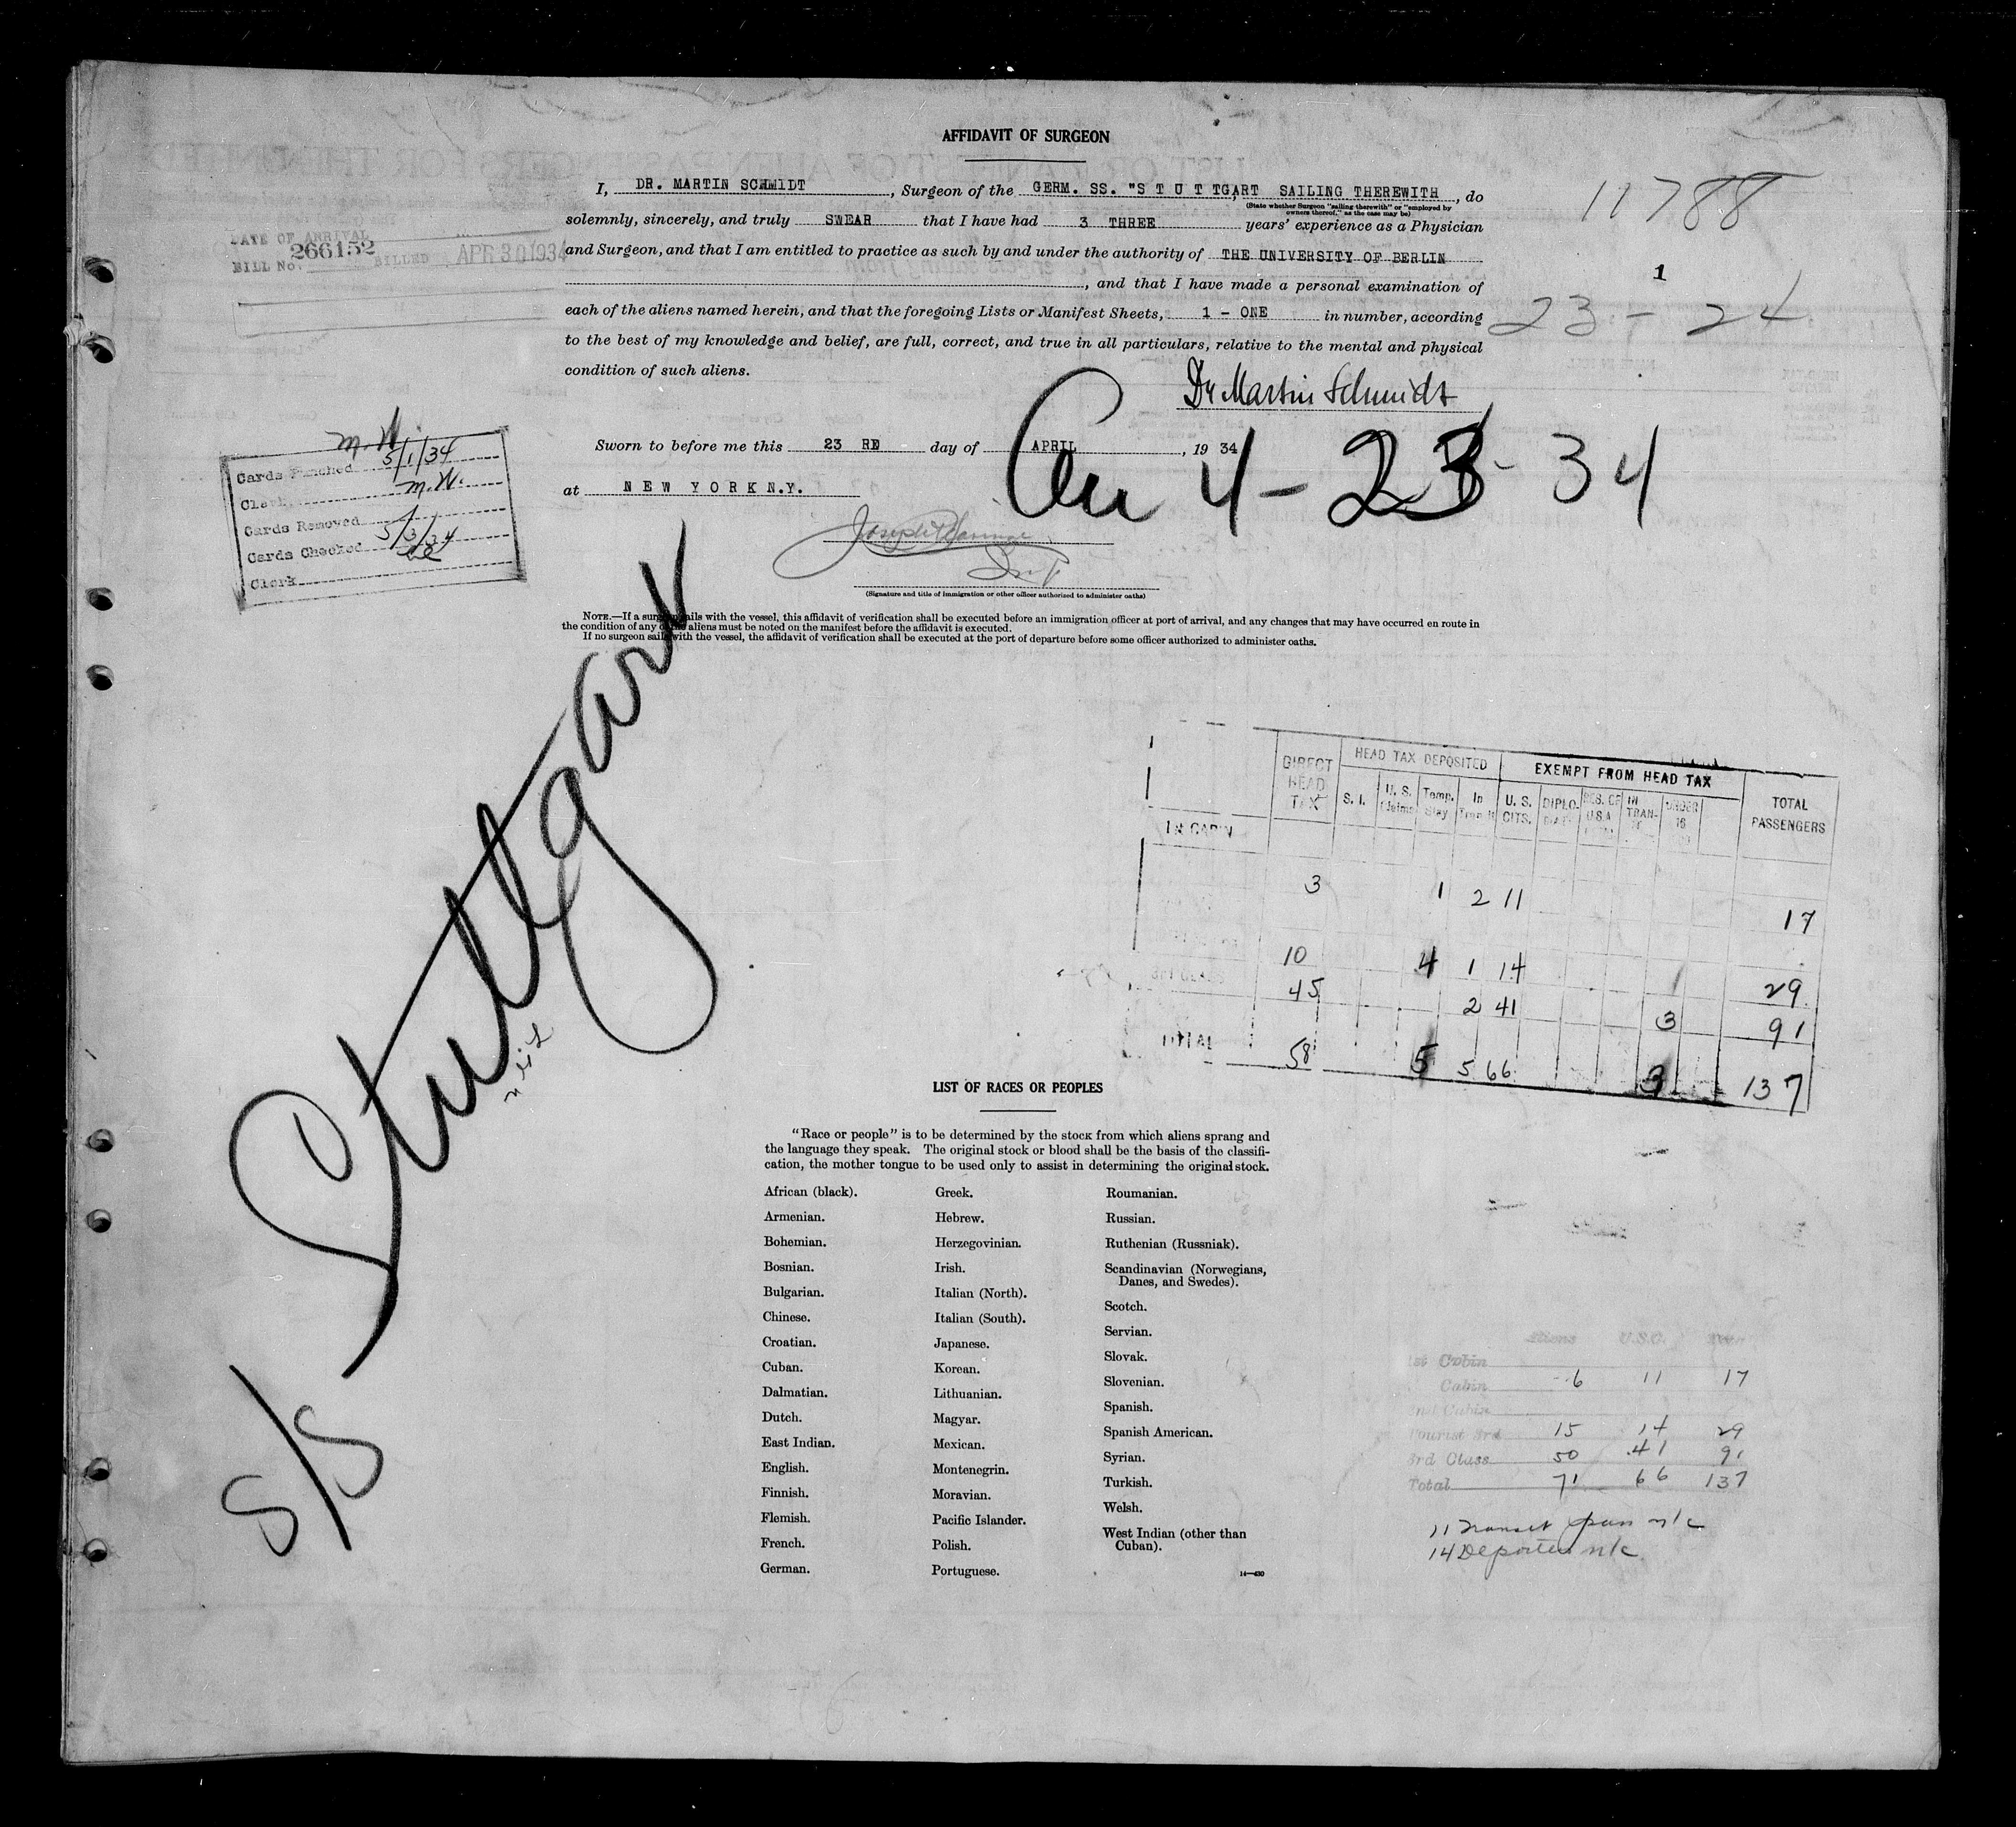 AFFIDAVIT OF SURGEON
I, DR. MARTIN SCHMIDT, Surgeon of the GERM. SS. "S T U T TGART, SAILING THEREWITH, do
(State whether Surgeon "sailing therewith" or "employed by
owners thereof," as the case may be)
solemnly, sincerely, and truly SWEAR that I have had 3 THREE years' experience as a Physician
and Surgeon, and that I am entitled to practice as such by and under the authority of THE UNIVERSITY OF BERLIN
, and that I have made a personal examination of
each of the aliens named herein, and that the foregoing Lists or Manifest Sheets, 1 - ONE in number, according
to the best of my knowledge and belief, are full, correct, and true in all particulars, relative to the mental and physical
condition of such aliens.
11788
1
23 - 24
DATE OF ARRIVAL
BILL No. 266152 BILLED APR 30 1934
Dr Martin Schmidt
Sworn to before me this 23 RE day of APRIL, 19 34
at N E W Y O R K N.Y.
4-23-34
(Signature and title of immigration or other officer authorized to administer oaths)
M.W.
Cards Punched 5/1/34
Clerk M.W.
Cards Removed
Cards Checked 5/3/34
Clerk
NOTE.—If a surgeon sails with the vessel, this affidavit of verification shall be executed before an immigration officer at port of arrival, and any changes that may have occurred en route in
the condition of any of the aliens must be noted on the manifest before the affidavit is executed.
If no surgeon sails with the vessel, the affidavit of verification shall be executed at the port of departure before some officer authorized to administer oaths.
S/S Stuttgart
DIRECT HEAD TAX
HEAD TAX DEPOSITED
EXEMPT FROM HEAD TAX
TOTAL PASSENGERS
S. I.
U. S.
Temp. Stay
In
U. S. CITS.
DIPLO-
RES. OF U.S.A.
IN TRAN-
UNDER 16
1st CABIN
3 1 2 11 17
10 4 1 14 29
45 2 41 3 91
TOTAL 58 5 5 66 3 137
LIST OF RACES OR PEOPLES
"Race or people" is to be determined by the stock from which aliens sprang and
the language they speak. The original stock or blood shall be the basis of the classifi-
cation, the mother tongue to be used only to assist in determining the original stock.
African (black).
Armenian.
Bohemian.
Bosnian.
Bulgarian.
Chinese.
Croatian.
Cuban.
Dalmatian.
Dutch.
East Indian.
English.
Finnish.
Flemish.
French.
German.
Greek.
Hebrew.
Herzegovinian.
Irish.
Italian (North).
Italian (South).
Japanese.
Korean.
Lithuanian.
Magyar.
Mexican.
Montenegrin.
Moravian.
Pacific Islander.
Polish.
Portuguese.
Roumanian.
Russian.
Ruthenian (Russniak).
Scandinavian (Norwegians,
Danes, and Swedes).
Scotch.
Servian.
Slovak.
Slovenian.
Spanish.
Spanish American.
Syrian.
Turkish.
Welsh.
West Indian (other than
Cuban).
14—430
Aliens U.S.C.
1st Cabin
Cabin 6 11 17
2nd Cabin
Tourist 3rd 15 14 29
3rd Class 50 41 91
Total 71 66 137
11 Transit n/c
14 n/c